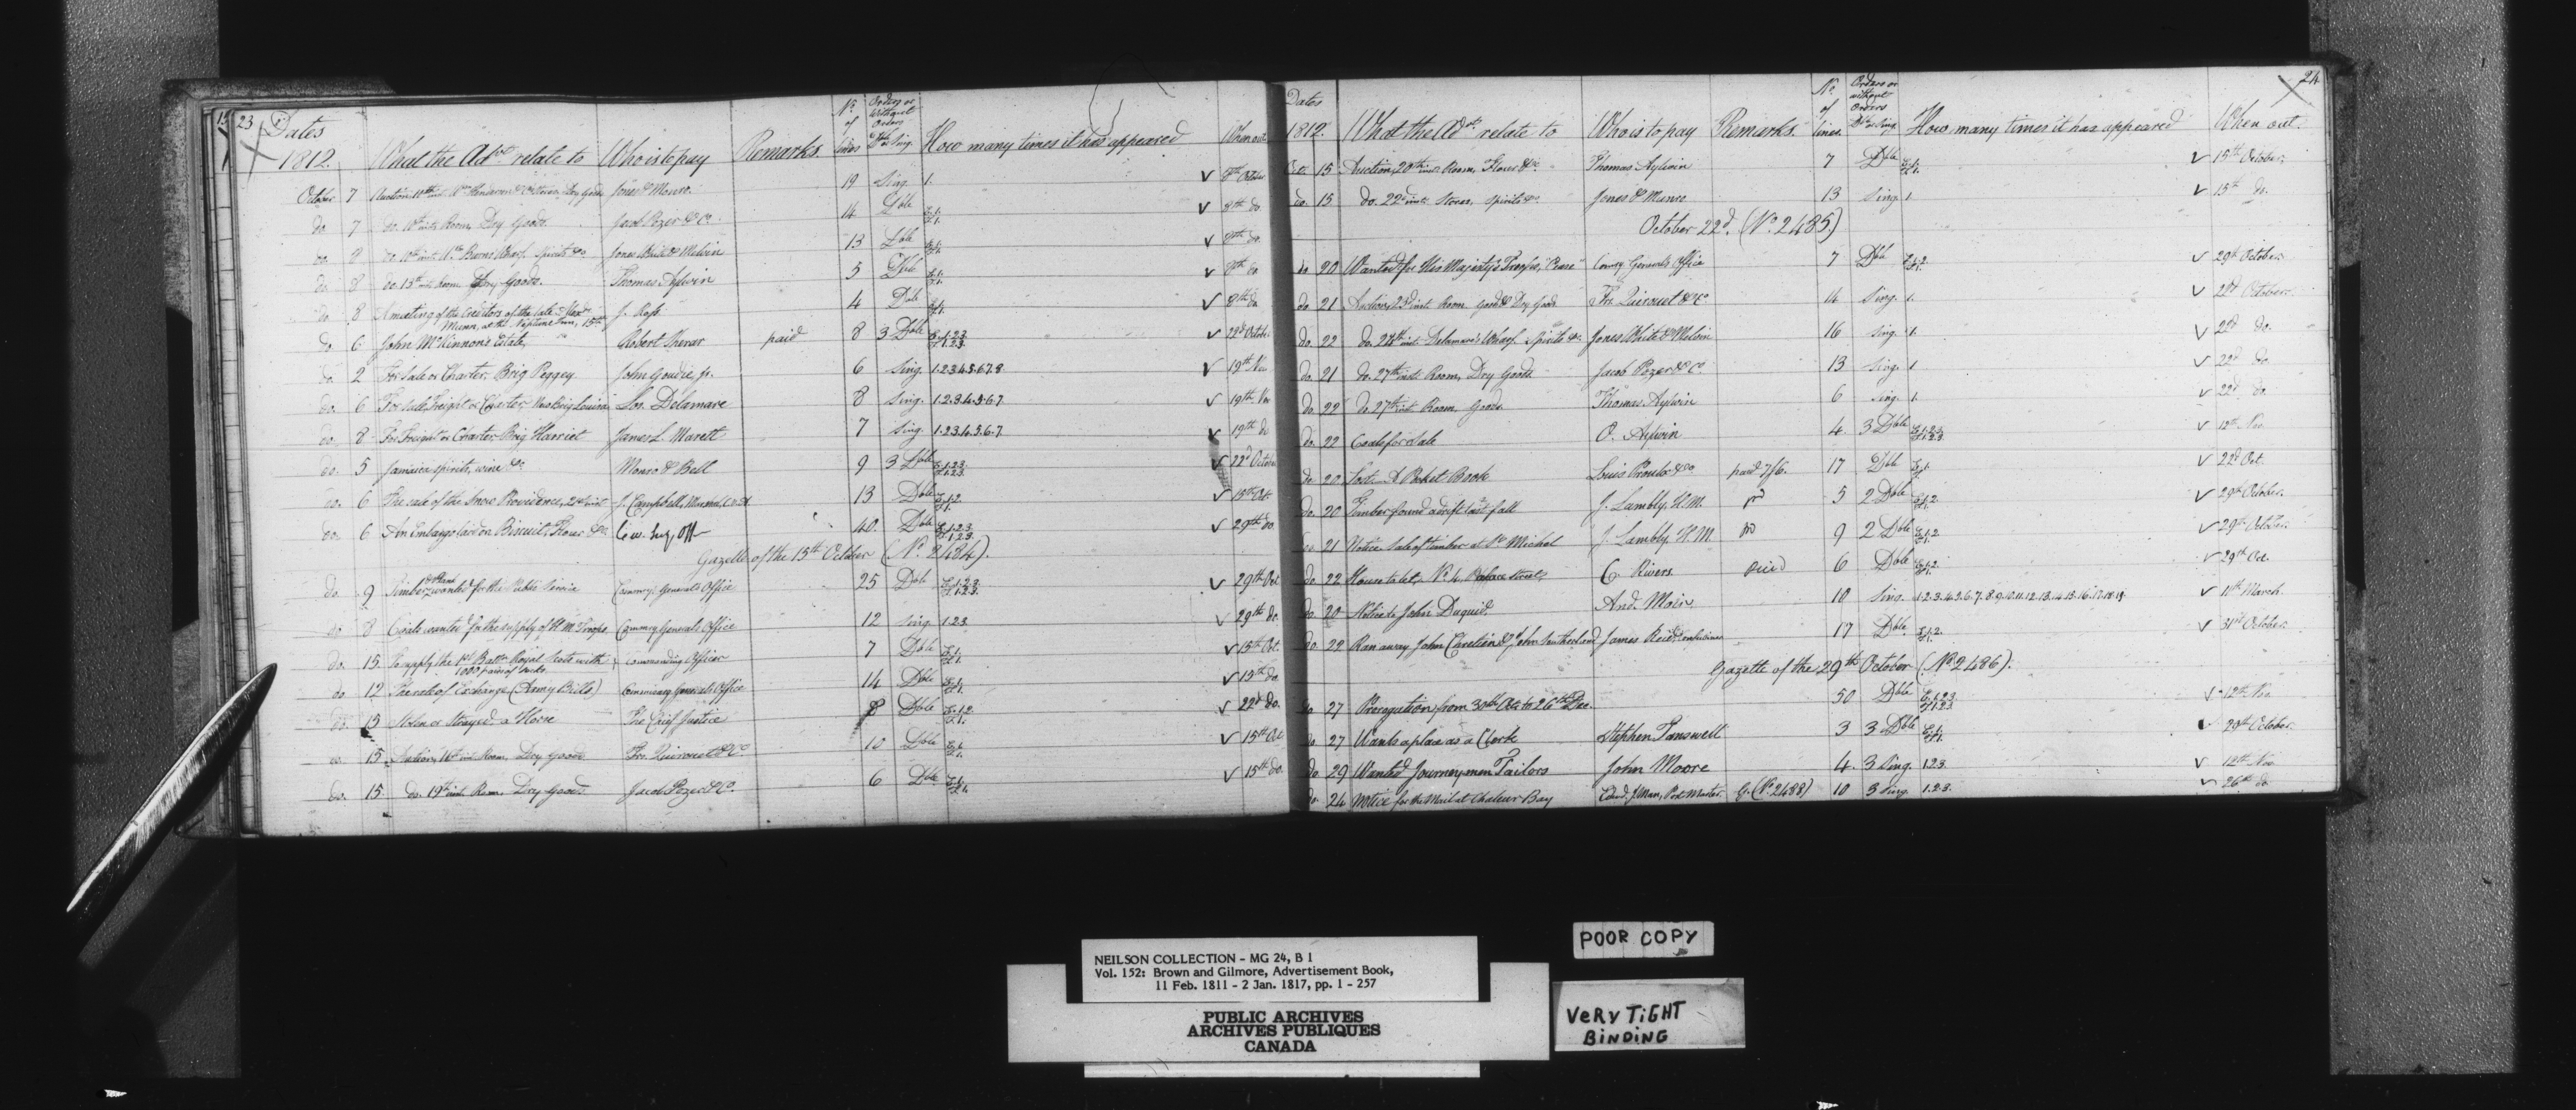 23
Dates 1812. What the Advt relate to Who is to pay Remarks. No of lines Orders or Without Orders Dble or Sing. How many times it has appeared When out
October 7 Auction 10th inst. Dry Goods Jones & Munro. 19 Sing. 1. √ 8th October
do 7 do. 10th inst. Room, Dry Goods. Jacob Pozer & Co. 14 Dble E.1. F.1. √ 8th do.
do. 8 do. 10th inst. Wharf. Spirits &c. Jones White & Melvin 13 Dble E.1. F.1. √ 8th do.
do. 8 do. 13th inst. Room Dry Goods. Thomas Aylwin 5 Dble E.1. F.1. √ 8th do
do 8 A meeting of the Creditors of the late Alexr. Munn, at the Neptune Inn, 15th J. Ross 4 Dble E.1. F.1. √ 8th do
do 6 John McKinnon's Estate, Robert Sherar paid 8 3 Dble E.1.2.3. F.1.2.3. √ 22d Octobr.
do. 2 For Sale or Charter, Brig Peggy John Goudie, jr. 6 Sing. 1.2.3.4.5.6.7.8 √ 19th Nov
do. 6 For Sale, Freight or Charter, New Brig Louisa Los. Delamare 8 Sing. 1.2.3.4.5.6.7 √ 19th Nov
do. 8 For Freight or Charter Brig Harriet James L. Marett 7 Sing 1.2.3.4.5.6.7 √ 19th do
do. 5 Jamaica spirits, wine &c. Munro & Bell 9 3 Dble E.1.2.3. F.1.2.3. √ 22d October
do. 6 The sale of the Snow Providence, 21st inst. J. Campbell, Marshal, 13 Dble E.1.2 F.1. √ 15th Oct.
do. 6 An Embargo laid on Biscuit, Flour &c. Civ. Sec. Off 40. Dble E.1.2.3 F.1.2.3. √ 29th do.
Gazette of the 15th October (No. 2484).
do. 9 Timber & Plank wanted for the Public Service Commy. General's Office 25 Dble E.1.2.3. F.1.2.3. √ 29th Oct
do 8 Coals wanted for the supply of H. M. Troops Commy Generals Office 12 Sing. 1.2.3 √ 29th do.
do. 15. To supply the 1st Batt. Royal Scots with 1000 pair of Commanding Officer 7 Dble E.1. F.1. √ 15th Oct.
do 12 The rate of Exchange (Army Bills) Commissary General's Office 14 Dble E.1. F.1. √ 15th do
do. 15 Stolen or Strayed a Horse The Chief Justice 8 Dble E.1.2 F.1. √ 22d do.
do. 15. Auction, 16th inst. Room, Dry Goods. Fr. Quirouet & Co. 10 Dble E.1. F.1. √ 15th Oct
do. 15. do. 19th inst. Room Dry Goods. Jacob Pozer & Co. 6 Dble E.1. F.1. √ 15th do.
24
Dates 1812. What the Advt. relate to Who is to pay Remarks. No. of lines. Orders or without Orders Dble or Sing. How many times it has appeared When out.
Oct. 15 Auction, 20th inst. Room, Flour &c. Thomas Aylwin 7 Dble E.1. F.1. √ 15th October,
do. 15 do. 22d inst. Stores, Spirits &c. Jones & Munro 13 Sing. 1 √ 15th do.
October 22d. (No. 2485)
do 20 Wanted for His Majesty's Troops, "Pease" Commy General's Office 7 Dble E.1.2 F.1. √ 29th October.
do 21 Auction, 23d inst. Room Good & Dry Goods Fr. Quirouet & Co 14 Sing. 1. √ 22d October
do. 22 do. 24th inst. Delamare's Wharf. Spirits &c. Jones White & Melvin 16 Sing. 1. √ 22d do.
do. 21 do. 27th inst. Room, Dry Goods Jacob Pozer & Co. 13 Sing. 1 √ 22d do
do 22 do. 27th inst. Room, Goods. Thomas Aylwin 6 Sing. 1. √ 22d do.
do. 22 Coals for Sale O. Aylwin 4. 3 Dble E.1.2.3. F.1.2.3. √ 12th Nov
do 20 Lost. A Pocket Book Louis Proulx paid 7/6. 17 Dble E.1. F.1. √ 22d Oct.
do. 20 Timber found adrift last fall J. Lambly, H.M. pd 5 2 Dble E.1.2. F.1.2. √ 29th October.
do. 21 Notice Sale of timber at St Michel J. Lambly, H.M. pd 9 2 Dble E.1.2 F.1.2. √ 29th October.
do 22 House to let, No. 4. Palace Street, C. Rivers paid 6 Dble E.1.2. F.1. √ 29th Oct
do. 20 Notice to John Duguid. And. Moir 10 Sing. 1.2.3.4.5.6.7.8.9.10.11.12.13.14.15.16.17.18.19 √ 11th March
do. 22 Ran away John Chretien & John Sutherland James Reid 17 Dble. E.1.2. F.1. √ 31st October.
Gazette of the 29th October (No. 2486).
do 27 Prorogation from 30th Oct. to 26th Dec. 50 Dble E.1.2.3 F.1.2.3 √ 12th Nov
do 27 Wants a place as a Clerk Stephen Tanswell 3 3 Dble E.1. F.1. √ 29th October
do 29 Wanted Journeymen Tailors John Moore 4. 3 Sing. 1.2.3. √ 12th Nov
do. 24 Notice for the Mail at Chaleur Bay Edwd. J Man, Post Master. G. (No. 2488) 10 3 Sing. 1.2.3. √ 26th do
POOR COPY
NEILSON COLLECTION - MG 24, B 1
Vol. 152: Brown and Gilmore, Advertisement Book,
11 Feb. 1811 - 2 Jan. 1817, pp. 1 - 257
PUBLIC ARCHIVES
ARCHIVES PUBLIQUES
CANADA
VERY TIGHT
BINDING